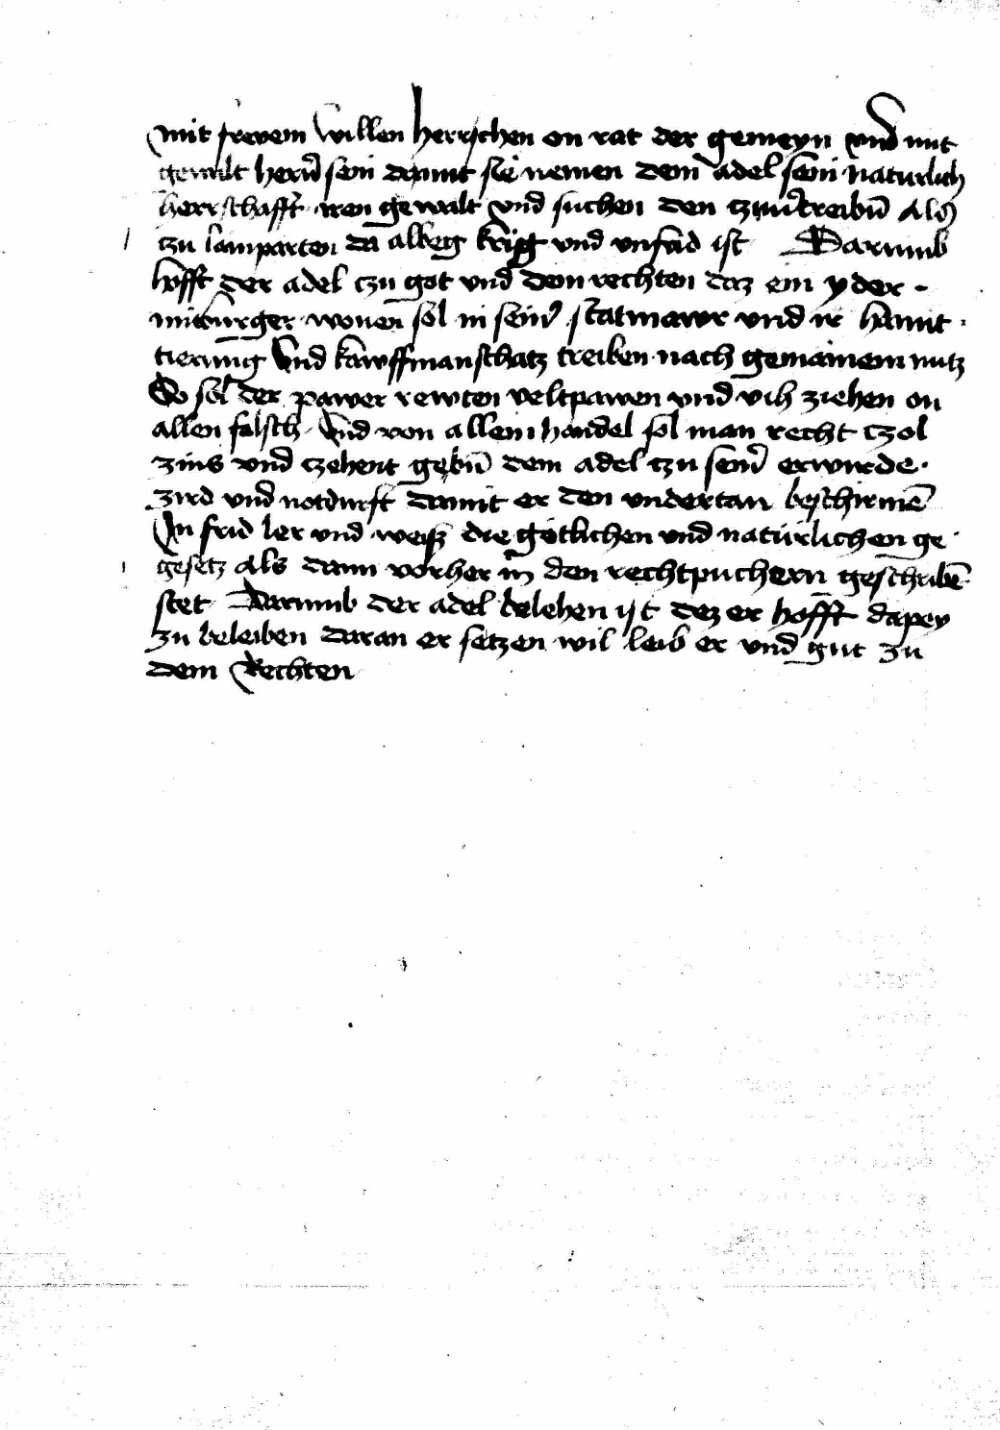 mit frevem willen herrschen on rat der gemeyn vnd mit
gewalt hern̄ sein damit sie nemen dem adel sein naturlich
herrschafft iren gewalt vnd suchen den czuu'treibn̄ Als
zu lamparten da albeg krÿg vnd vnfrid ist Darumb
hofft der adel czu got vnd dem rechten daz ein yder
mitburger wonen sol in sein' statmawr vnd ir hannt
tierung Vnd kawffmanschatz treiben nach gemainem nutz
So sol der pawer rewten veltpawen vnd vih ziehen on
allen falsch Vnd von allem handel sol man recht czol
zins vnd czehent gebn̄ dem adel czu sein' erwirde
zird vnd notdurft damit er den vndertan beschirmē
In frid ler vnd weiß die gotlichen vnd naturlichen ge
gesetz als dann vorher in den rechtpuchern geschribē
stet Darumb der adel belehen ist dez er hofft dapey
zu beleiben daran er setzen wil leib er vnd gut zu
dem Rechten